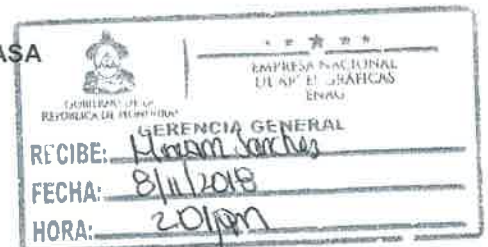 ASA
GOBIERNO DE LA
REPÚBLICA DE HONDURAS
EMPRESA NACIONAL
DE ARTES GRÁFICAS
ENAG
GERENCIA GENERAL
RECIBE: Miriam Sanchez
FECHA: 8/11/2018
HORA: 2:01pm